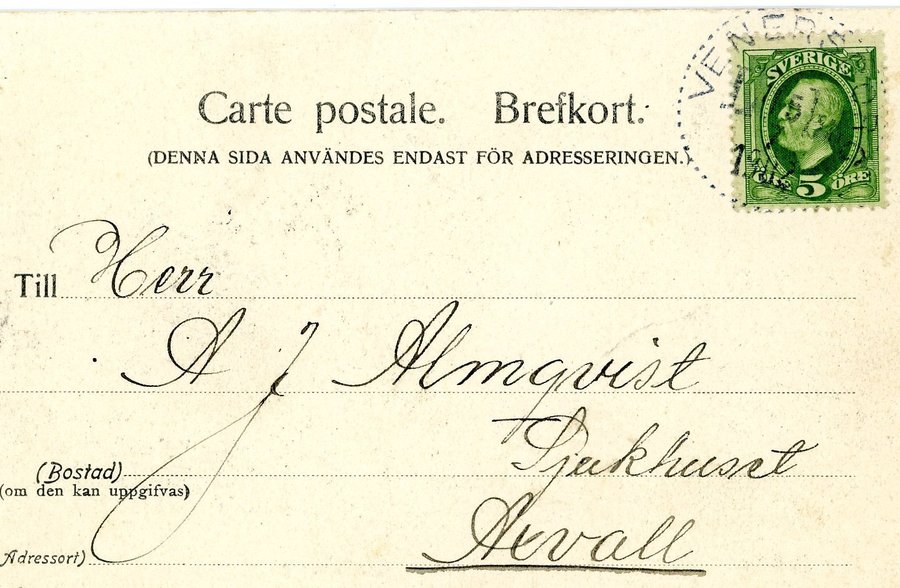 VENER
SVERIGE
5 ÖRE
Carte postale. Brefkort.
(DENNA SIDA ANVÄNDES ENDAST FÖR ADRESSERINGEN.)
Till Herr
A J Almqvist
Sjukhuset
(Bostad)
(om den kan uppgifvas)
Axvall
Adressort)